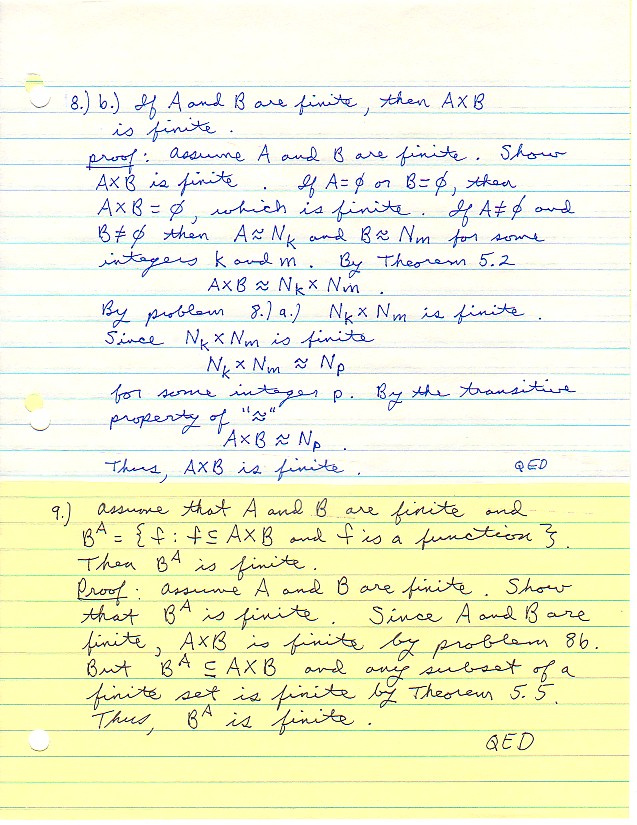 8.) b.) If A and B are finite, then A×B
is finite.
proof: Assume A and B are finite. Show
A×B is finite. If A=∅ or B=∅, then
A×B = ∅, which is finite. If A≠∅ and
B≠∅ then A≈Nₖ and B≈Nₘ for some
integers k and m. By Theorem 5.2
A×B ≈ Nₖ×Nₘ.
By problem 8.) a.) Nₖ×Nₘ is finite.
Since Nₖ×Nₘ is finite
Nₖ×Nₘ ≈ Nₚ
for some integer p. By the transitive
property of "≈"
A×B ≈ Nₚ.
Thus, A×B is finite. QED
9.) Assume that A and B are finite and
Bᴬ = {f : f ⊆ A×B and f is a function}.
Then Bᴬ is finite.
Proof: Assume A and B are finite. Show
that Bᴬ is finite. Since A and B are
finite, A×B is finite by problem 8b.
But Bᴬ ⊆ A×B and any subset of a
finite set is finite by Theorem 5.5.
Thus, Bᴬ is finite.
QED